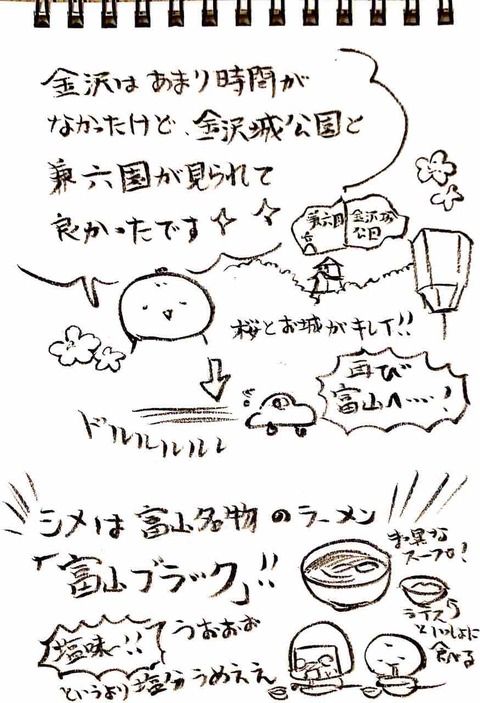 金沢はあまり時間が
なかったけど、金沢城公園と
兼六園が見られて
良かったです☆☆
兼六園
金沢城
公園
桜とお城がキレイ!!
再び
富山へ……!
ドルルルルル
シメは富山名物のラーメン
「富山ブラック」!!
まっ黒な
スープ!
ライスも
といっしょに
食べる
塩味〜!!
うおおお
というより塩分うめええ